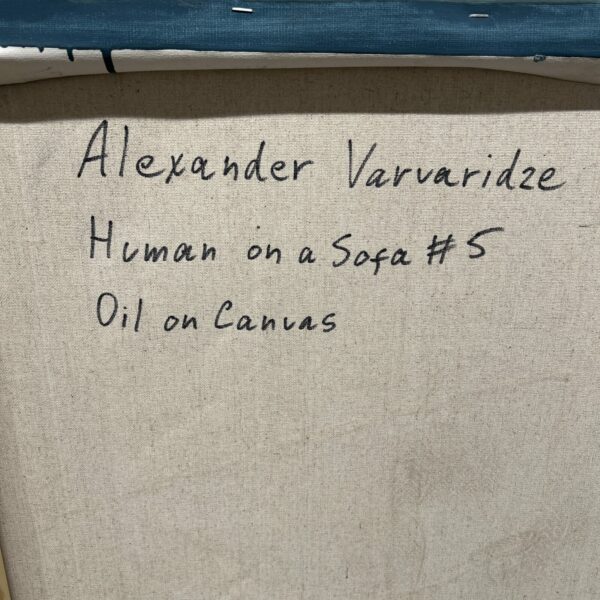 Alexander Varvaridze
Human on a Sofa #5
Oil on Canvas